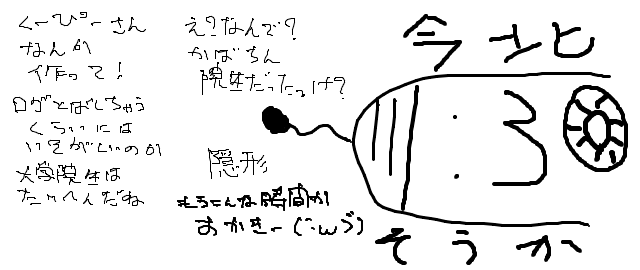 くーぴーさん
なんか
作って！
ログとばしちゃう
くらいには
いそがしいのか
大学院生は
たいへんだね
え？なんで？
かばちん
院生だったっけ？
隠形
もうこんな時間か
おかきー(´･ω･`)
:3
そうか